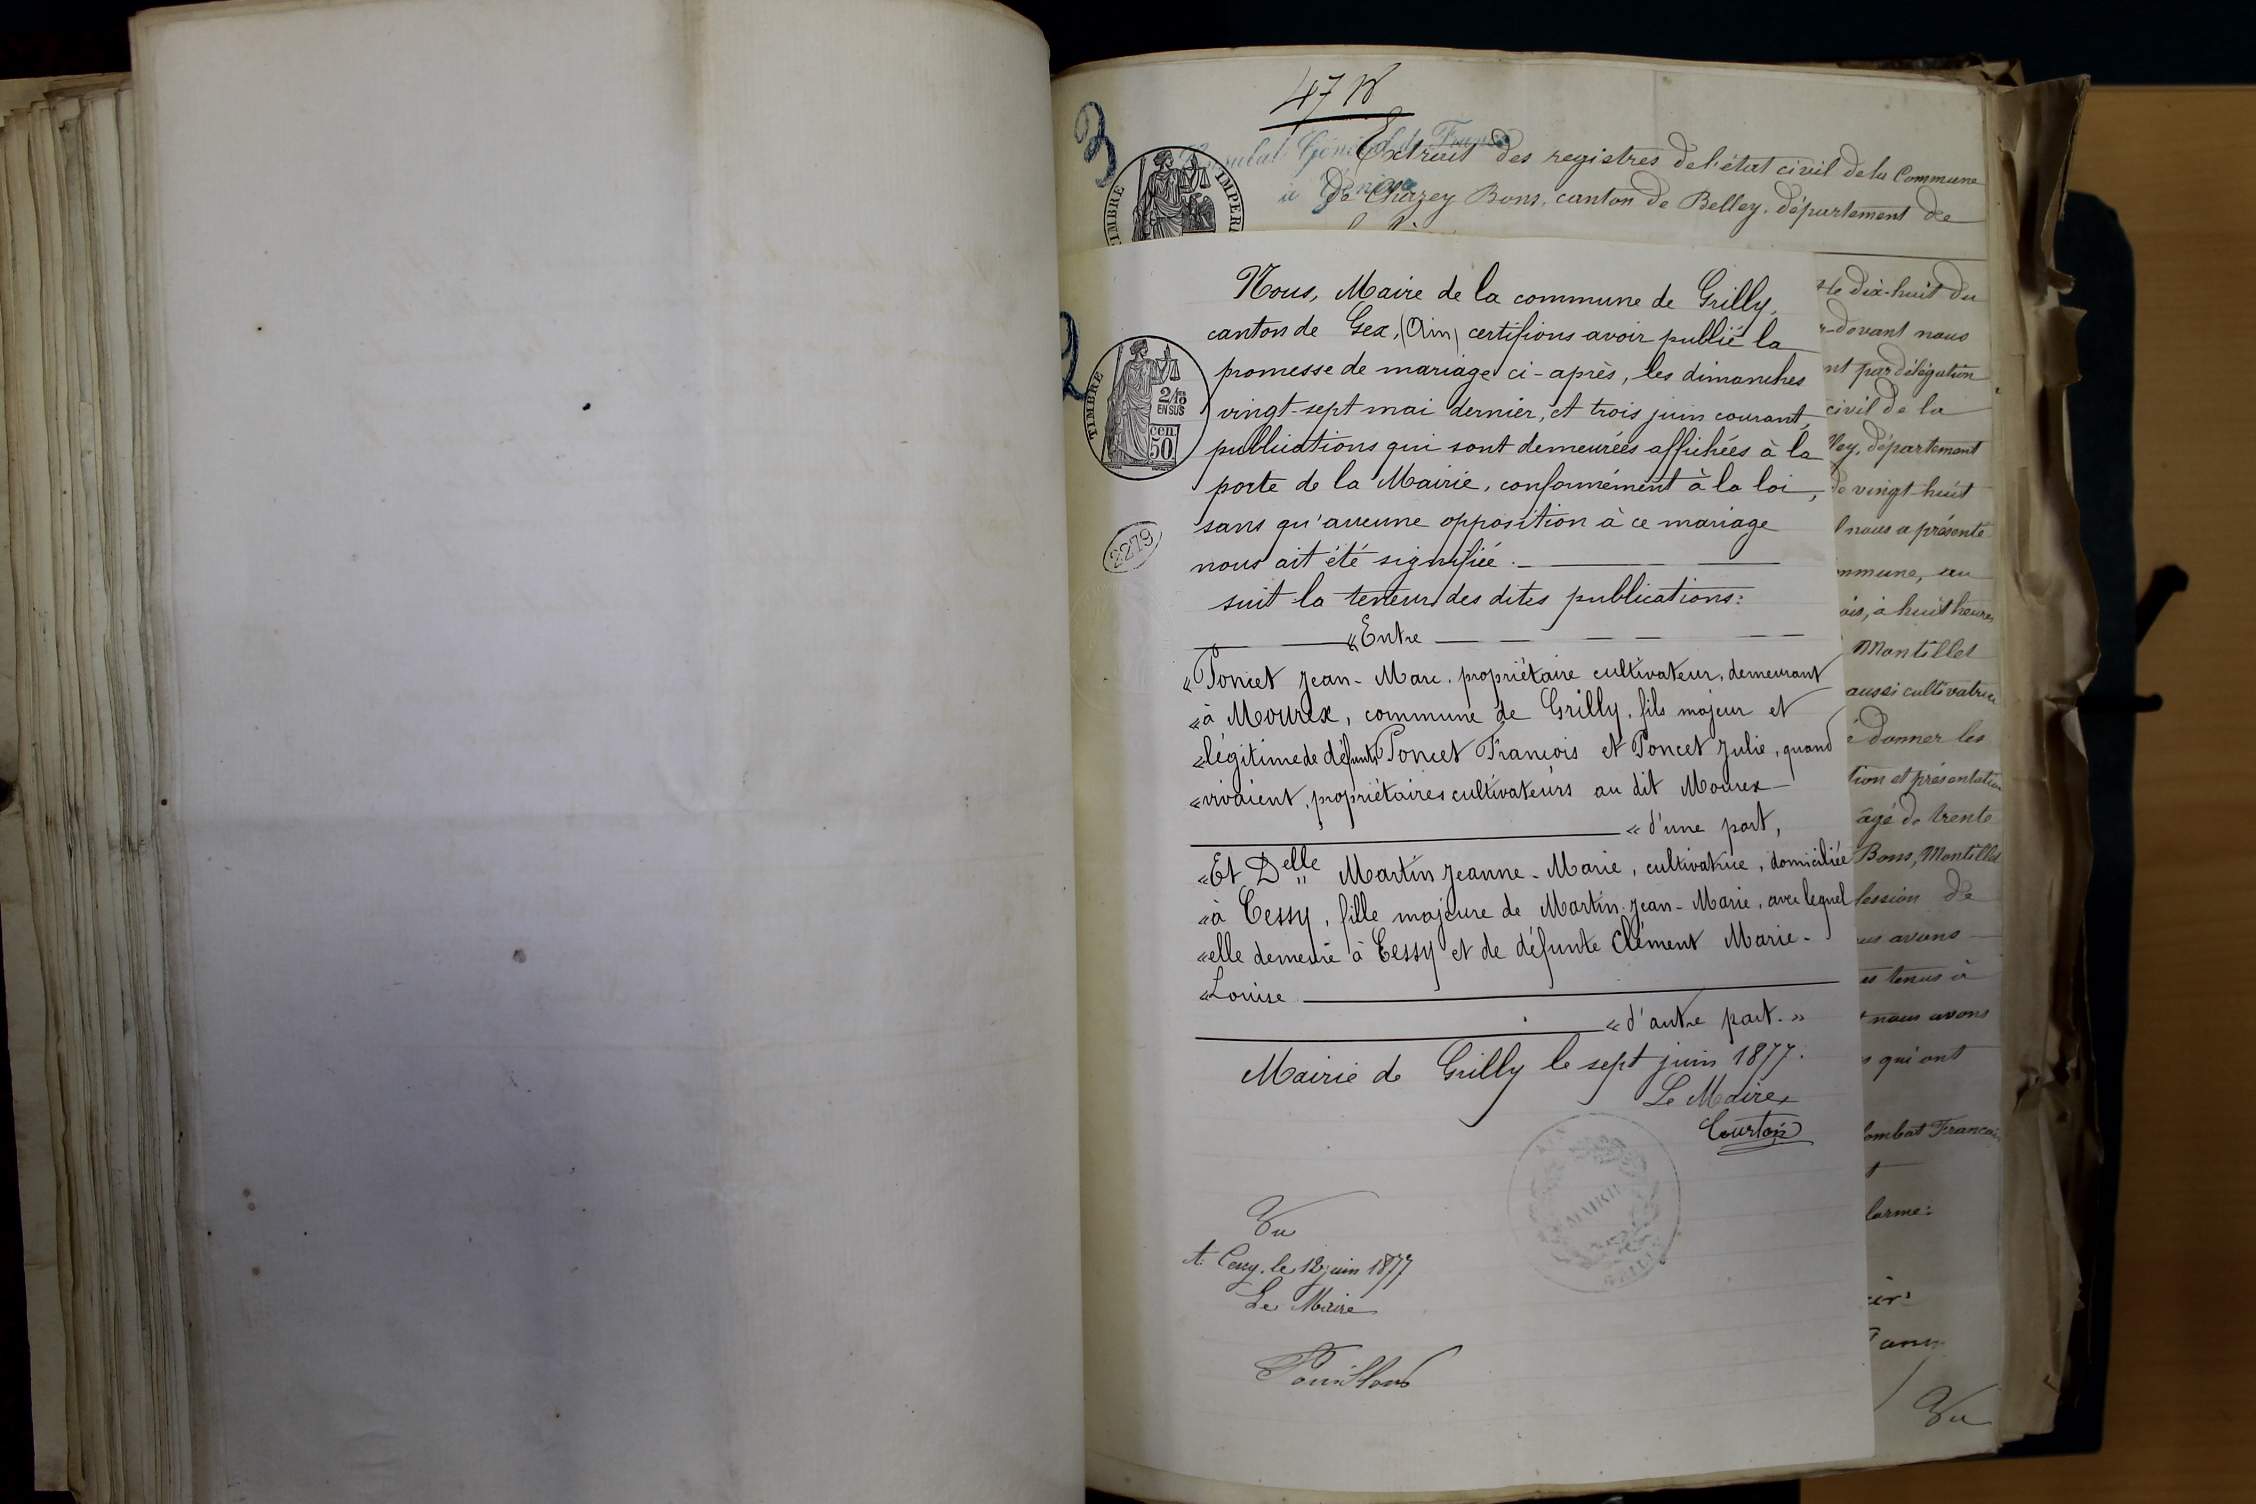 47
3
Consulat Général de France
à
Extrait des registres de l'état civil de la Commune
de Chazey Bons, canton de Belley, département de
TIMBRE IMPERI
2
Nous, Maire de la commune de Grilly,
canton de Gex, (Ain) certifions avoir publié la
promesse de mariage ci-après, les dimanches
vingt-sept mai dernier, et trois juin courant,
publications qui sont demeurées affichées à la
porte de la Mairie, conformément à la loi,
sans qu'aucune opposition à ce mariage
nous ait été signifiée.
suit la teneur des dites publications:
« Entre
« Poncet Jean-Marc, propriétaire cultivateur, demeurant
« à Mourex, commune de Grilly, fils majeur et
« légitime de défunts Poncet François et Poncet Julie, quand
« vivaient, propriétaires cultivateurs au dit Mourex
« d'une part,
« Et Delle Martin Jeanne-Marie, cultivatrice, domiciliée
« à Cessy, fille majeure de Martin Jean-Marie, avec lequel
« elle demeure à Cessy et de défunte Clément Marie-
« Louise
« d'autre part. »
Mairie de Grilly le sept juin 1877.
Le Maire,
Courtois
MAIRIE
TIMBRE
2/10
EN SUS
cen.
50
2279
Vu
A Cessy, le 12 juin 1877
Le Maire
le dix-huit du
devant nous
nt par délégation
civil de la
ley, département
de vingt-huit
nous a présenté
mmune, au
ois, à huit heures
Montillet
aussi cultivatrice
donner les
tion et présentation
âgé de trente
Bons, Montillet
lession de
us avons
es tenus à
nous avons
qui ont
ombat François
forme:
Vu